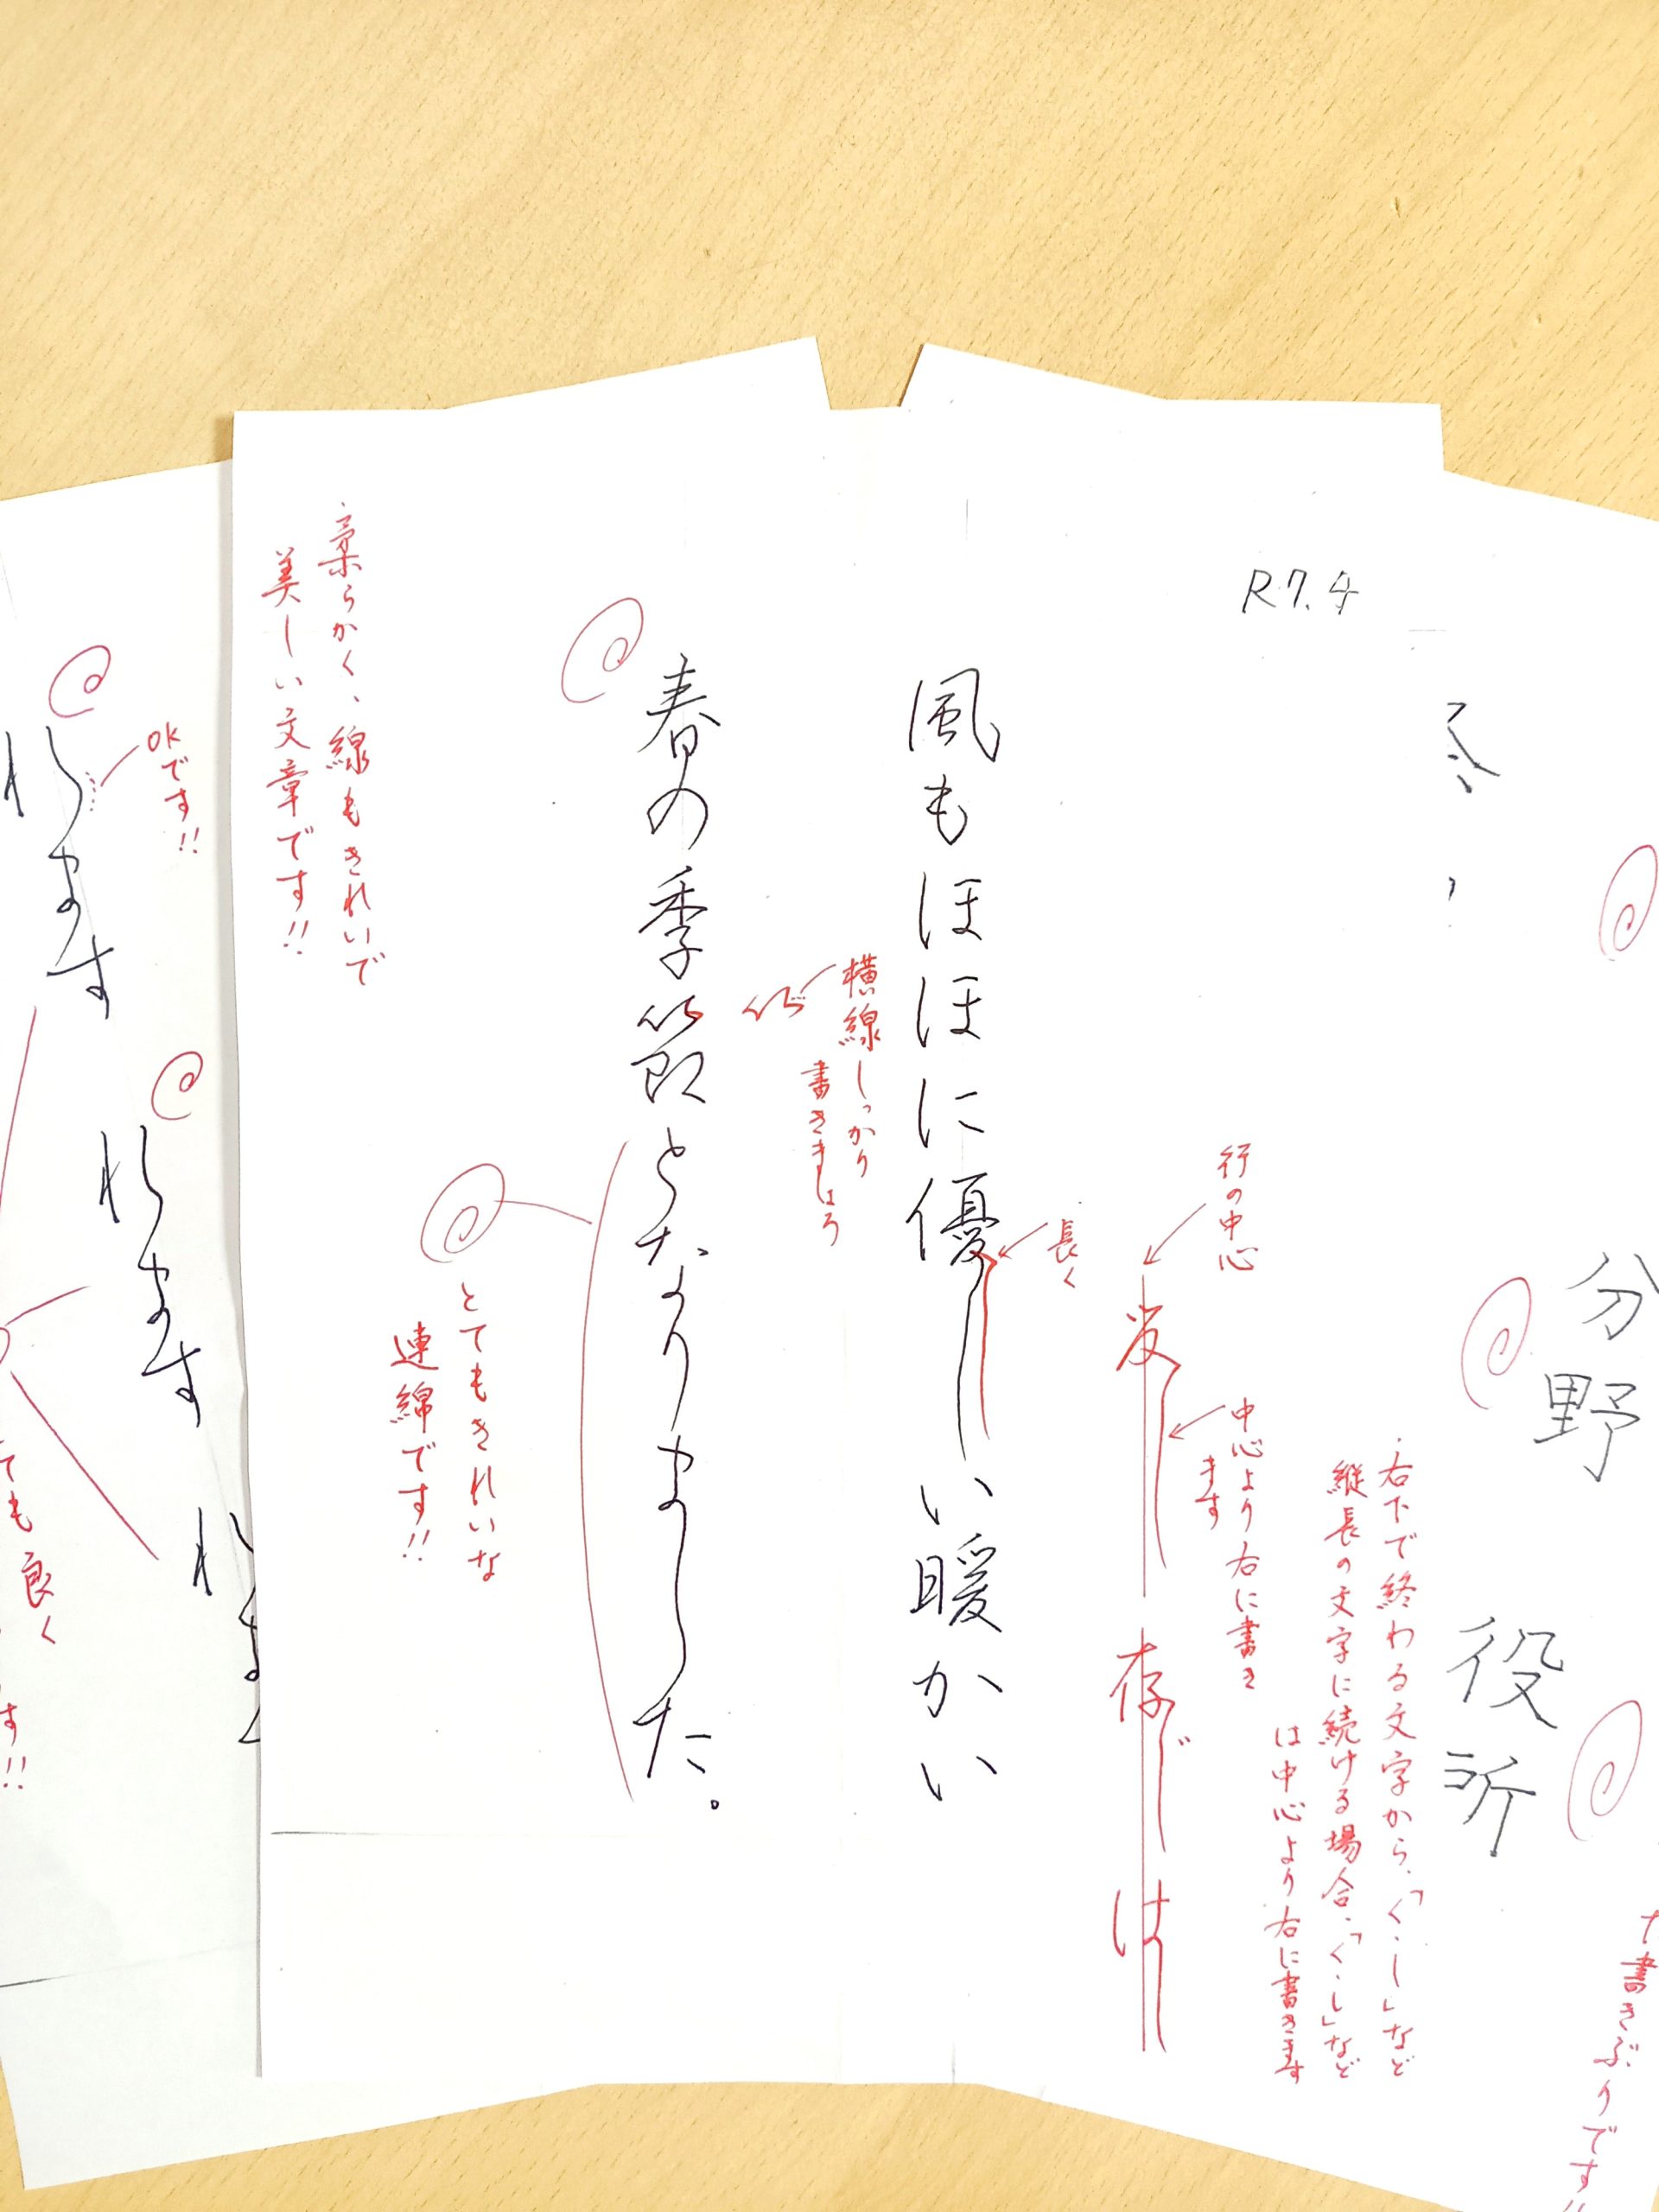 R7.4
分野
役所
書きぶりです!!
・右下で終わる文字から、「く・し」など
縦長の文字に続ける場合、「く・し」など
は中心より右に書きます
行の中心
中心より右に書き
ます
長く
存じ
は
風もほほに優しい暖かい
横線しっかり
書きましょう
春の季節となりました。
とてもきれいな
連綿です!!
・柔らかく、線もきれいで
美しい文章です!!
OKです!!
れます
れます
れま
ても良く
す!!